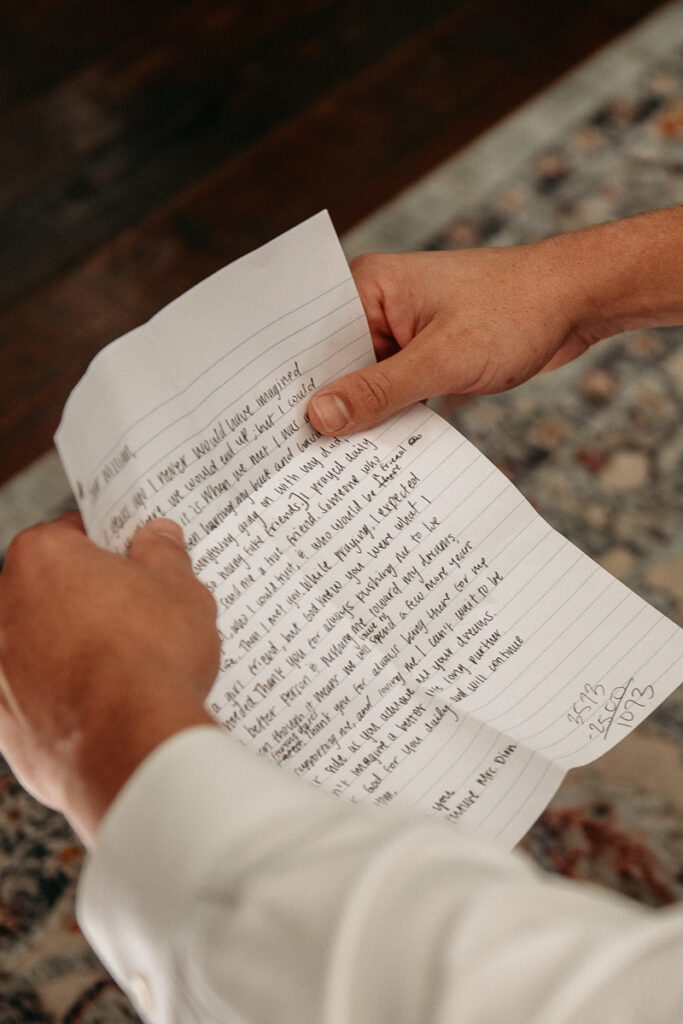 William,
years ago I never would have imagined
where we would end up, but I could
it is. When we met I was
hurting my
everything going on with my dad
so many fake friends, I prayed daily
send me a true friend. Someone who
I could trust, & who would be there
friend
Then I met you. While praying, I expected
a girl friend, but God knew you were what I
needed. Thank you for always pushing me to be
better person & pushing me toward my dreams,
even though it means we will have to spend a few more years
Thank you for always being there for me
supporting me, and loving me. I can't wait to be
side as you achieve all your dreams.
imagine a better life long partner.
God for you daily and will continue
you
Future Mrs. Dion
3573
-2500
1073